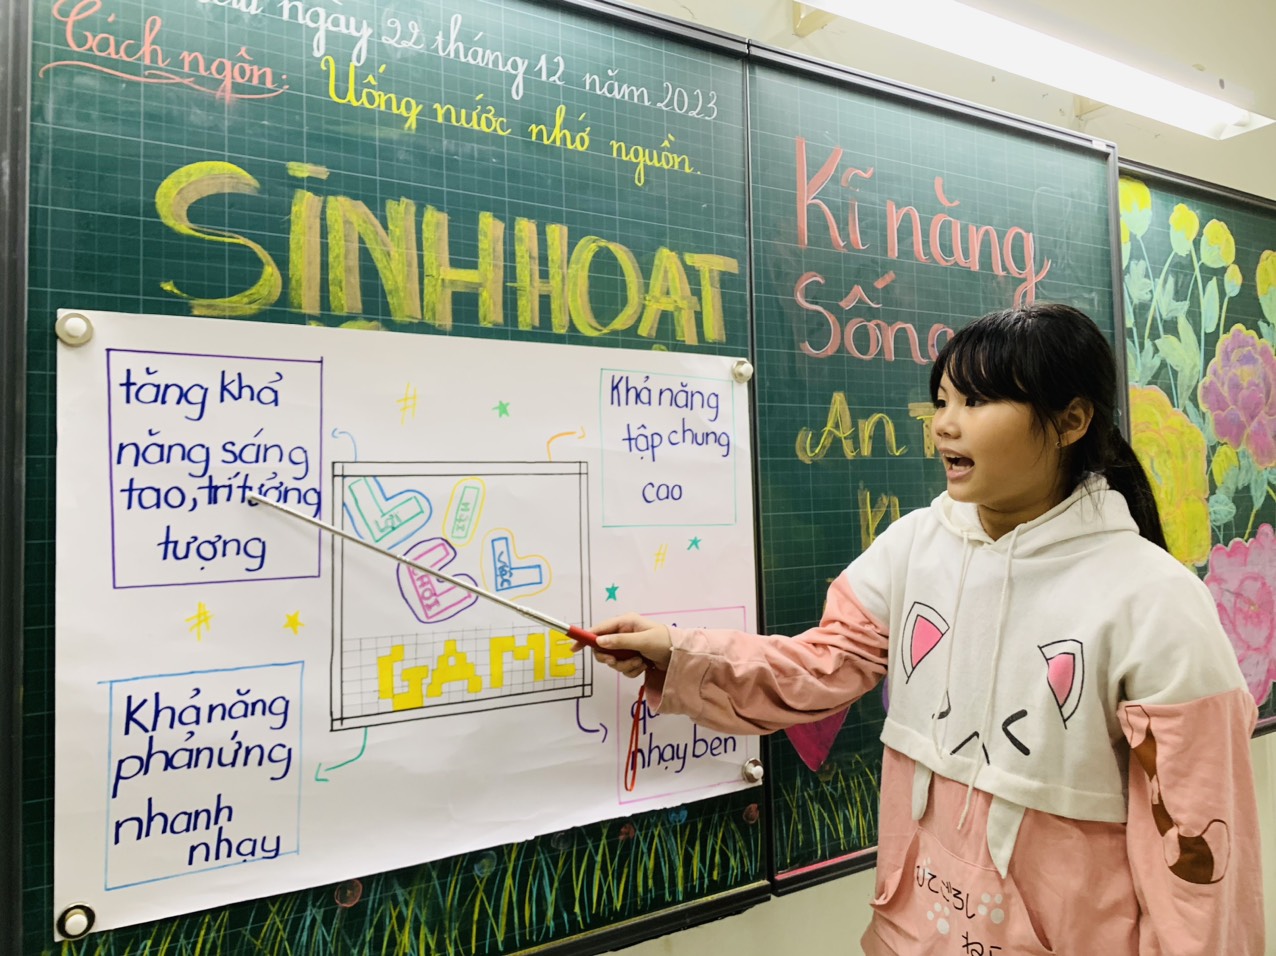 ngày 22 tháng 12 năm 2023
Cách ngôn:
Uống nước nhớ nguồn.
SINH HOẠT
Kĩ năng
Sống
An
tăng khả
năng sáng
tao, trí tưởng
tượng
Khả năng
tập chung
cao
LỢI
ÍCH
CHƠI
VIỆC
GAME
Khả năng
phản ứng
nhanh
nhạy
nhạy ben